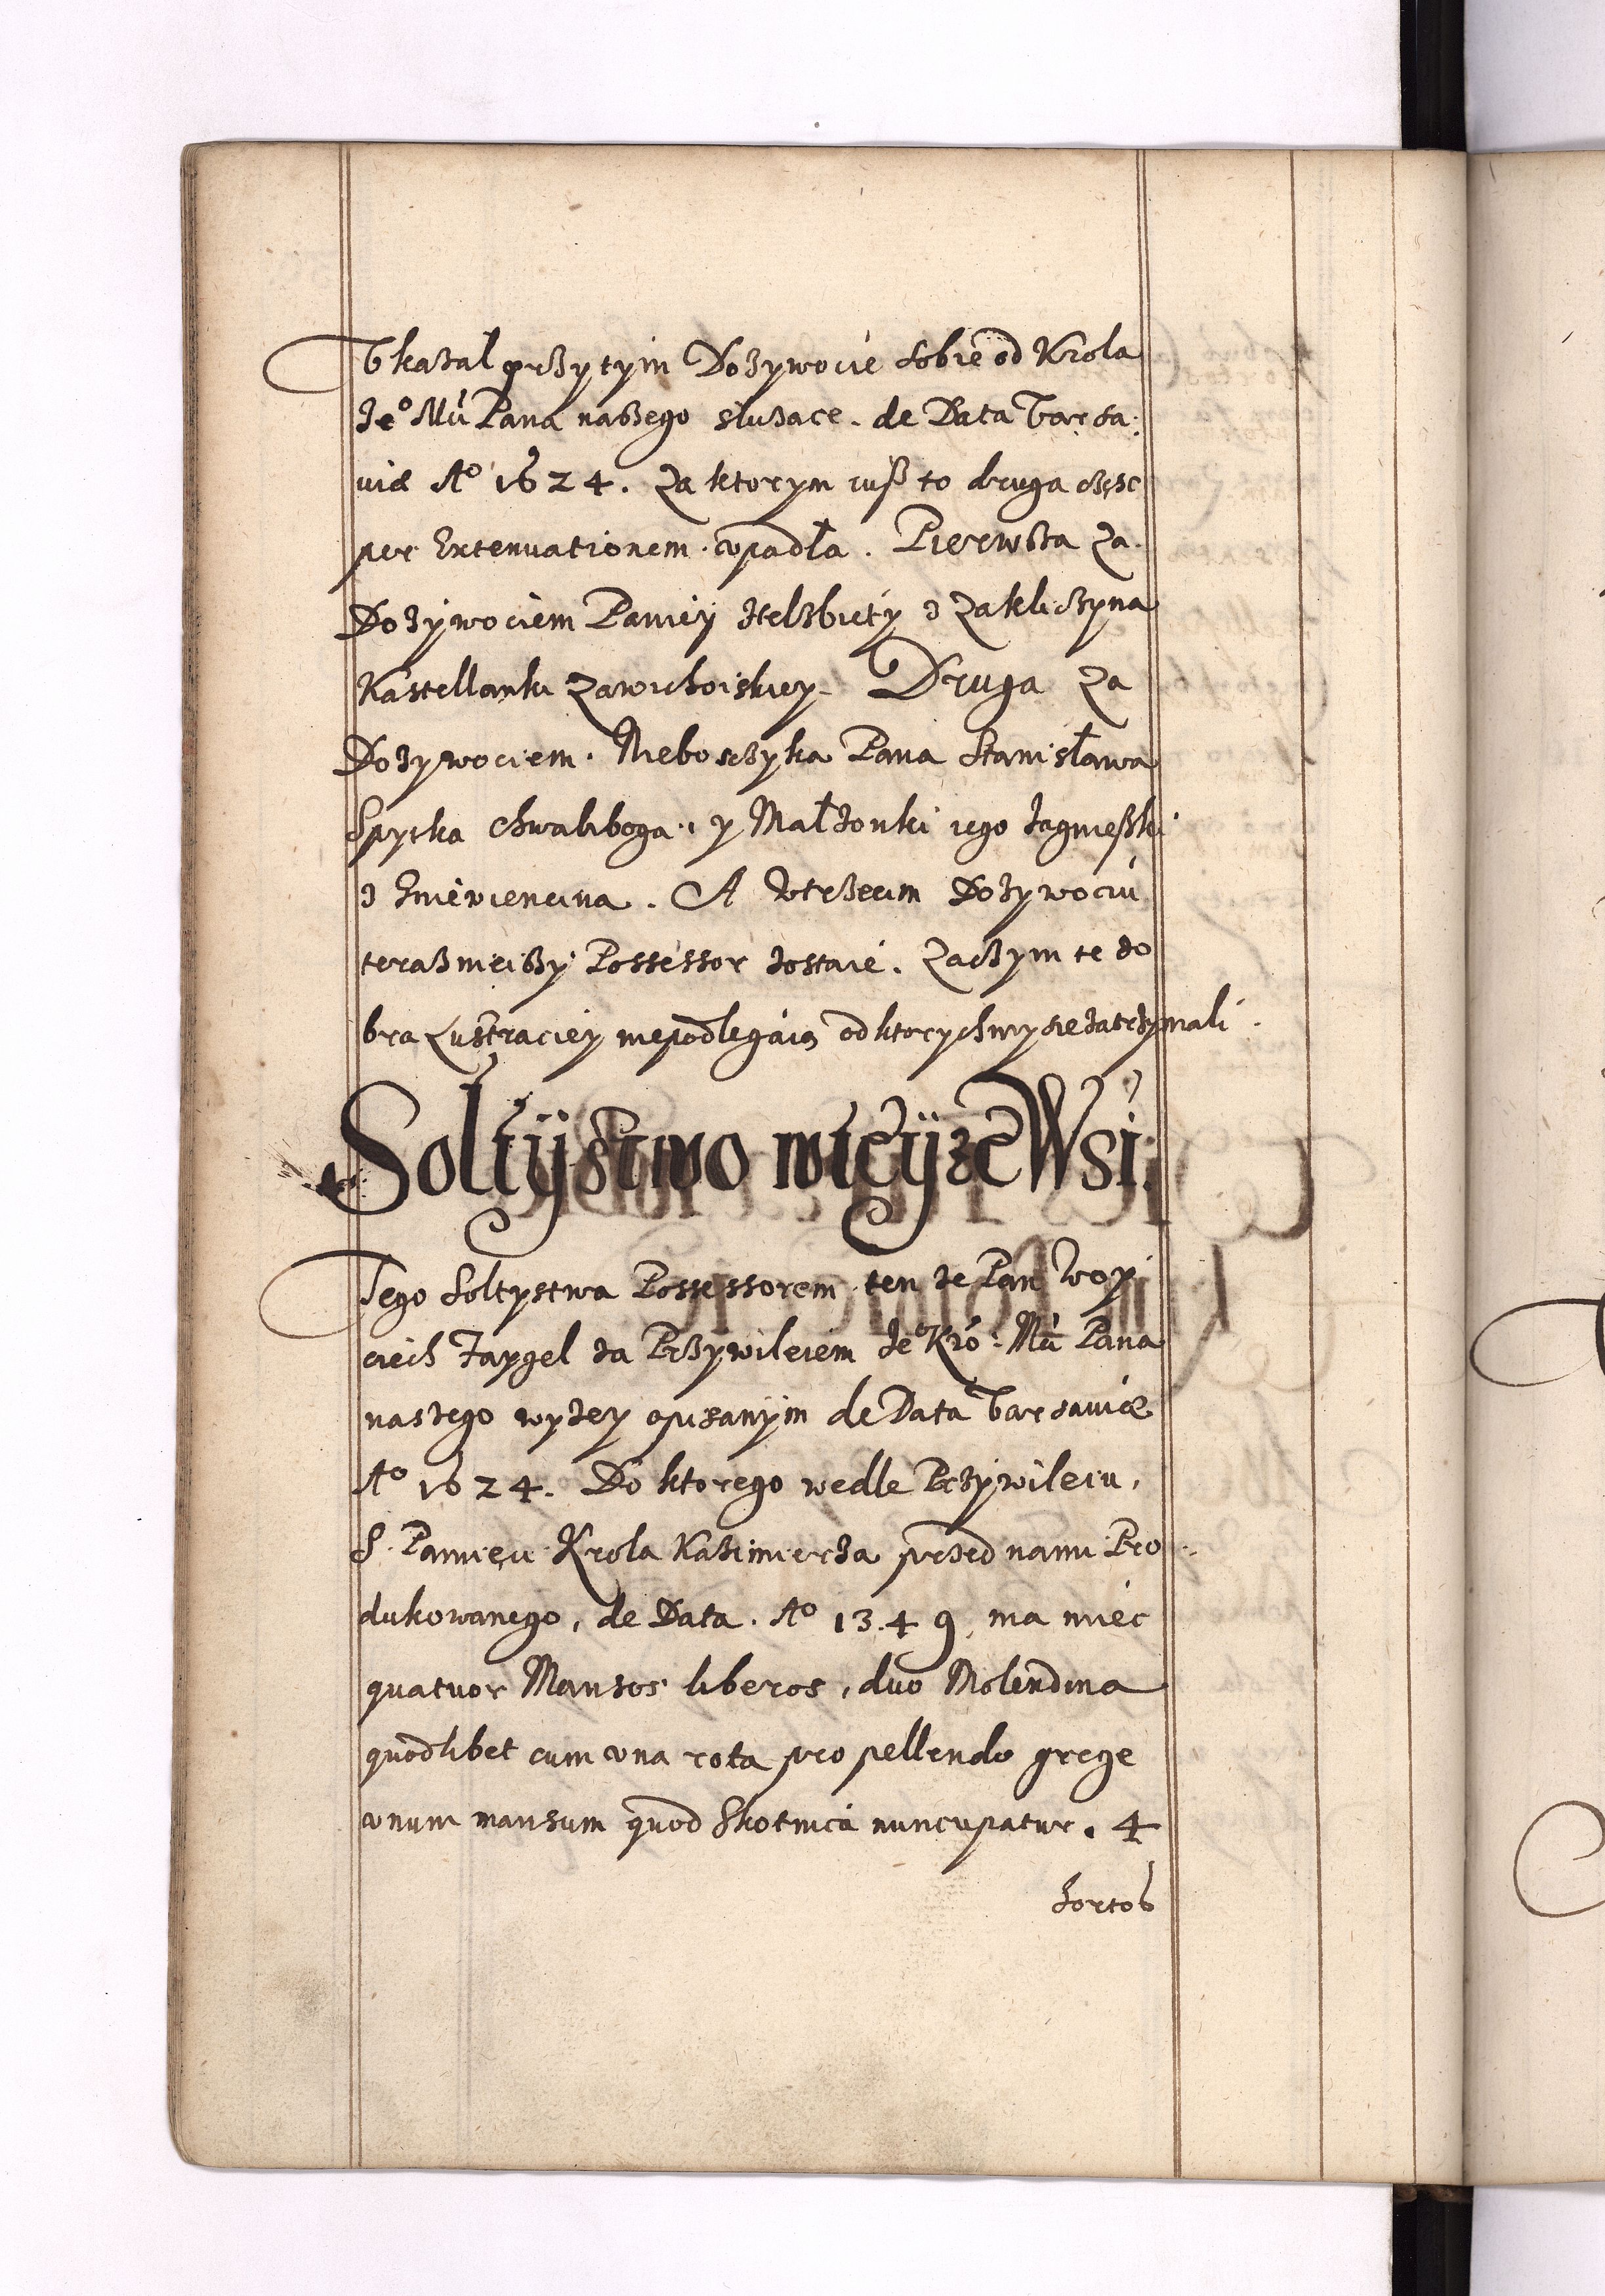 Vkazał przytym Dozywocie sobie od Krola
Je° Mci Pana naszego słuzace. de Data Varsa:
viæ A° 1624. Za ktorym iusz to druga częsc
per Extenuationem vpadła. Pierwsza za
Dozywociem Paniey Helzbiety z Zakliczyna
Kastellanki Zawichoiskiey. Druga za
Dozywociem. Nieboszczyka Pana Stanisława
Spytka Chwaliboga. y Małzonki iego Jagnieszki
z . A wtrzecim Dozywociu
terasznieiszy Possessor zostaie. Zaczym te do
bra Lustraciey niepodlegaią od ktorychmy sie zatrzymali.
Soltystwo wteyze Wsi.
Tego Soltystwa Possessorem ten ze Pan Woy
ciech Faygel za Przywileiem Je° Kro: Mci Pana
naszego wyzey opisanym de Data Varsaviæ
A° 1624. Do ktorego wedle Przywileiu,
S. Pamięci Krola Kazimierza przed nami Pro
dukowanego, de Data. A° 13.49, ma miec
quatuor Mansos liberos, duo Molendina
quodlibet cum vna rota pro pellendo grege
vnum mansum quod Skotnica nuncupatur. 4
hortos